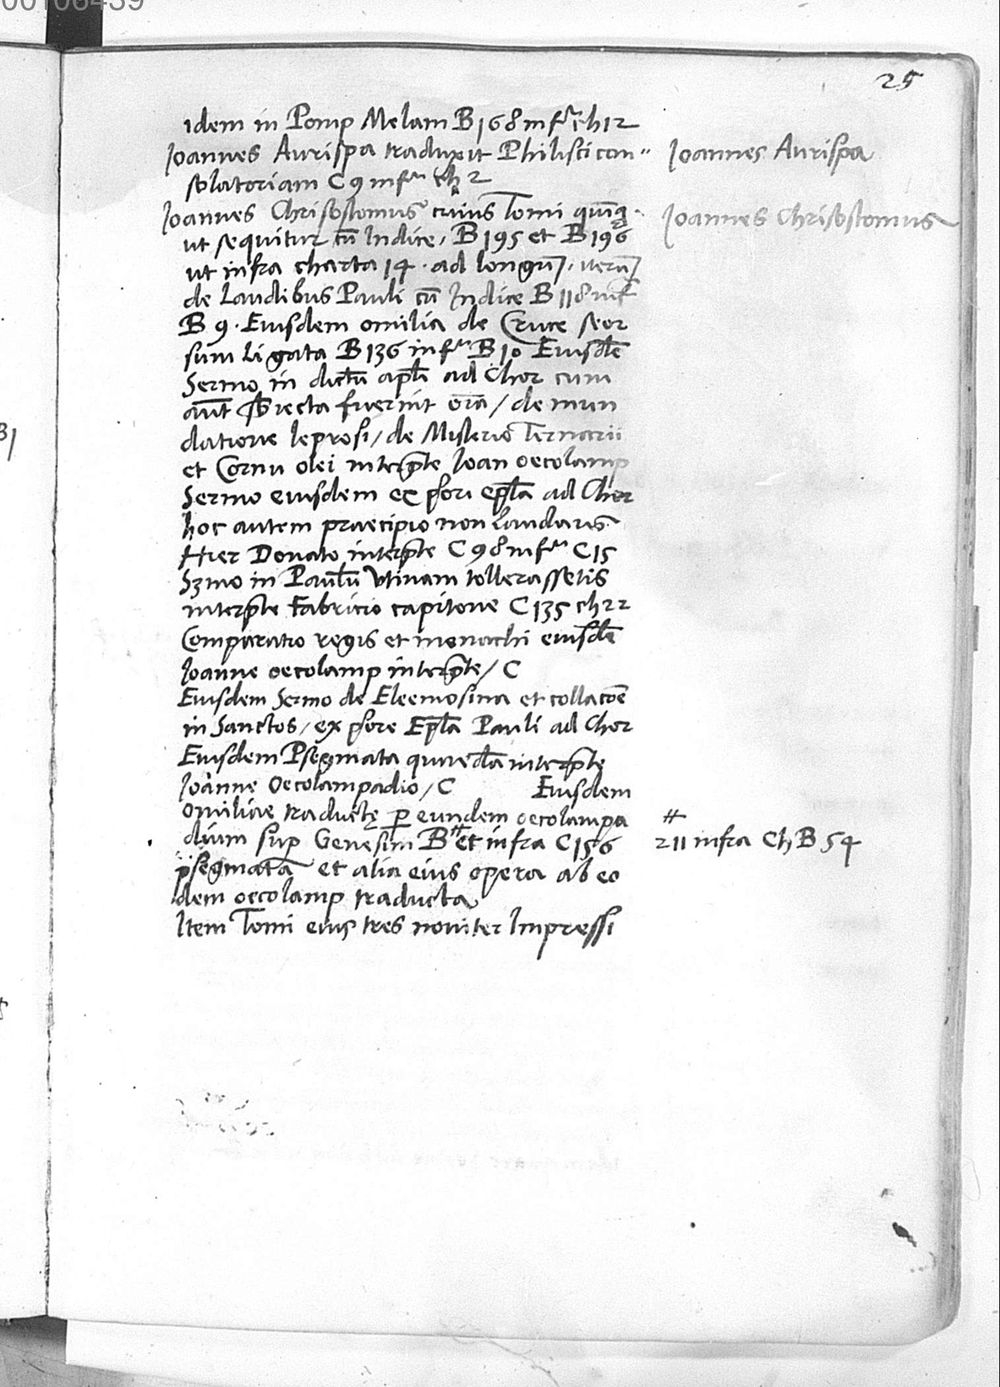 25
idem in Pomp Melam B168 infra ch12
Joannes Aurispa traduxit Philisci con"
Joannes Aurispa
solatoriam C 9 infra ch 2
Joannes Chrisostomus cuius Tomi quinq
Joannes Chrisostomus
ut sequitur cū Indice, B195 et B196
ut infra charta 14 · ad longum,
de Laudibus Pauli cū Indice B 118 inf
B 9 · Eiusdem omilia de Cruce seor
sum ligata B136 infra B10 Eiusdē
Sermo in dictū apli ad Chor cum
aūt subiecta fuerint oīa / de mun
datione leprosi / de Misterio Ternarii
et Cornu olei interprte Joan oecolamp
Sermo eiusdem ex priori epla ad Chor
hoc autem praecipio non laudans
Hier Donato interprte C 98 infra C15
Sermo in Paulū Utinam tollerassetis
interprte Fabricio capitone C135 ch22
Comparatio regis et monachi eiusdē
Joanne oecolamp interprte / C
Eiusdem Sermo de Eleemosina et collacoē
in Sanctos / ex priore Epla Pauli ad Chor
Eiusdem Psegmata quaedā interprte
Joanne Oecolampadio / C Eiusdem
omiliae traductę p eundem oecolampa
dium sup Genesim B # et infra C156
# 211 infra Ch B 54
psegmata et alia eius opera ab eo
dem oecolamp traducta
Item Tomi eius tres noviter Impressi